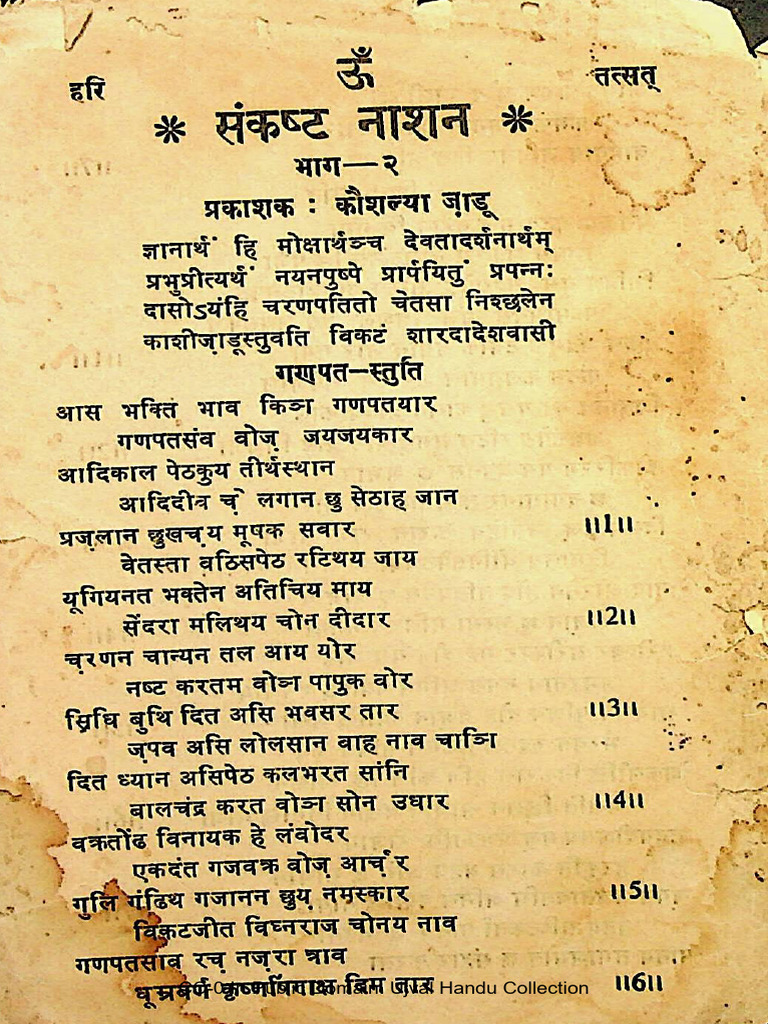 ॐ
हरि तत्सत्
* संकष्ट नाशन *
भाग—२
प्रकाशक : कौशल्या जा़डू
ज्ञानार्थं हि मोक्षार्थञ्च देवतादर्शनार्थम्
प्रभुप्रीत्यर्थं नयनपुष्पे प्रार्पयितुं प्रपन्नः
दासोऽयंहि चरणपतितो चेतसा निश्छलेन
काशीजा़डूस्तुवति विकटं शारदादेशवासी
गणपत—स्तुति
आस भक्ति भाव किञा गणपतयार
गणपतसंव वोज़ जयजयकार
आदिकाल पेठकुय तीर्थस्थान
आदिदीव च़े लगान छु सेठाह जान
प्रज़लान छुखच़य मूषक सवार ॥1॥
वेतस्ता वठिसपेठ रटिथय जाय
यूगियनत भक्तेन अतिचिय माय
सेंदरा मलिथय चोन दीदार ॥2॥
च़रणन चान्यन तल आय योर
नष्ट करतम वोञ पापुक वोर
स्रिधि बुथि दित असि भवसर तार ॥3॥
ज़पव असि लोलसान वाह नाव चाञि
दित ध्यान असिपेठ कलभरत सांनि
बालचंद्र करत वोञ सोन उधार ॥4॥
वक्रतोंढ विनायक हे लंवोदर
एकदंत गजवक्र वोज़ आर्च़र
गुलि गंढिथ गजानन छुय़ नमस्कार ॥5॥
विकटजीत विघ्नराज चोनय नाव
गणपतसाव रच़ नज़रा त्राव
धूम्रवर्ण कृष्णपिंगाक्ष दिम तार ॥6॥
Ujval Handu Collection